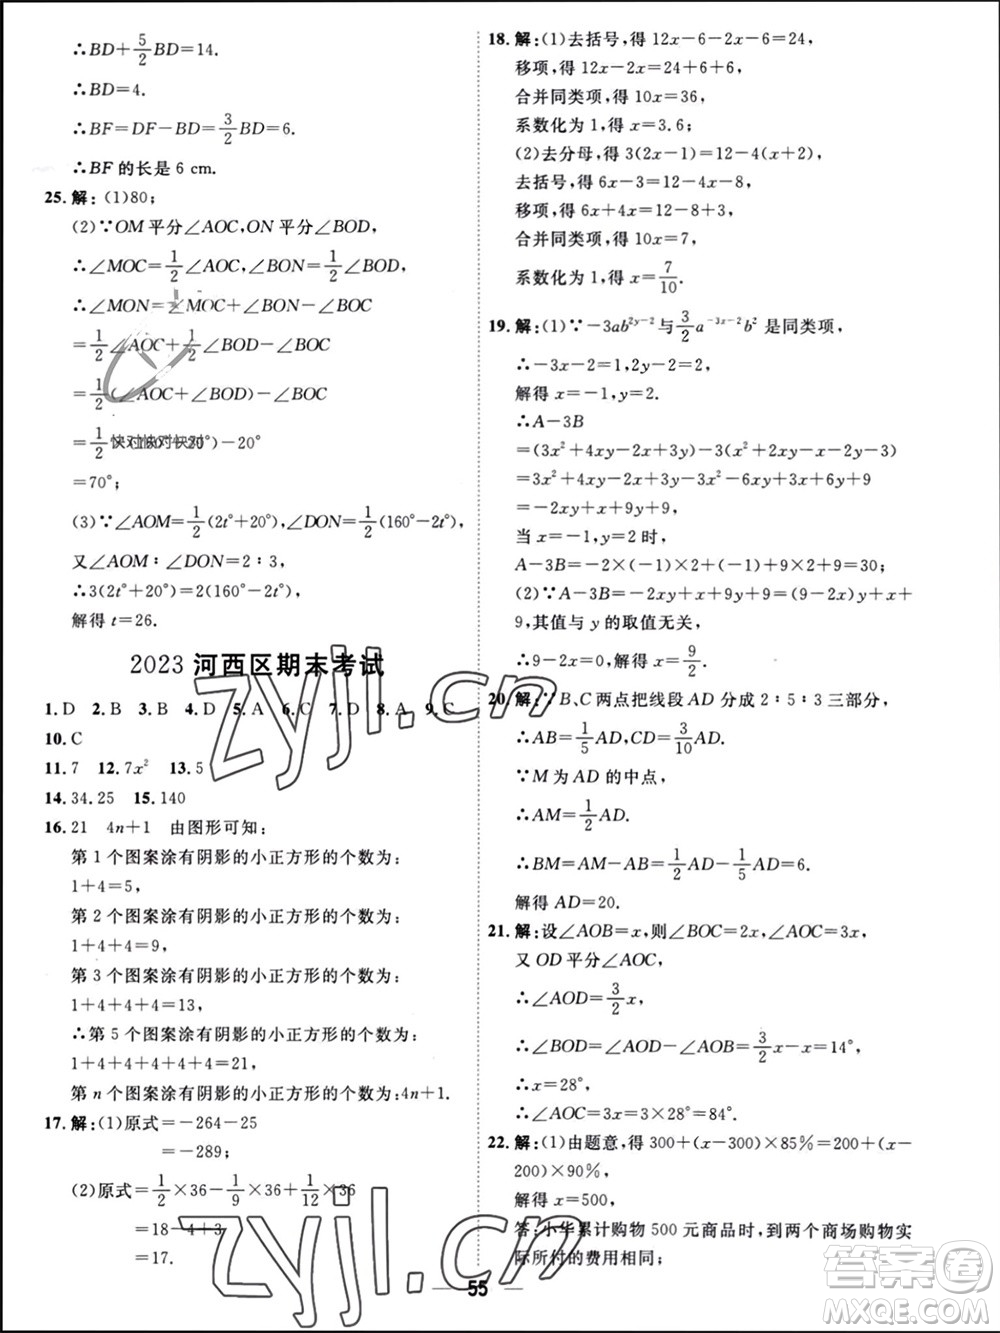 ∴BD+5/2BD=14.
∴BD=4.
∴BF=DF-BD=3/2BD=6.
∴BF 的长是 6 cm.
25. 解:(1)80;
(2)∵OM 平分∠AOC,ON 平分∠BOD,
∴∠MOC=1/2∠AOC,∠BON=1/2∠BOD,
∴∠MON=∠MOC+∠BON-∠BOC
=1/2∠AOC+1/2∠BOD-∠BOC
=1/2(∠AOC+∠BOD)-∠BOC
=1/2 20°)-20°
=70°;
(3)∵∠AOM=1/2(2t°+20°),∠DON=1/2(160°-2t°),
又∠AOM∶∠DON=2∶3,
∴3(2t°+20°)=2(160°-2t°)
解得 t=26.
2023 河西区期末考试
1. D 2. B 3. B 4. D 5. A 6. C 7. D 8. A 9. C
10. C
11. 7 12. 7x² 13. 5
14. 34.25 15. 140
16. 21 4n+1 由图形可知:
第 1 个图案涂有阴影的小正方形的个数为:
1+4=5,
第 2 个图案涂有阴影的小正方形的个数为:
1+4+4=9,
第 3 个图案涂有阴影的小正方形的个数为:
1+4+4+4=13,
∴第 5 个图案涂有阴影的小正方形的个数为:
1+4+4+4+4+4=21,
第 n 个图案涂有阴影的小正方形的个数为:4n+1.
17. 解:(1)原式=-264-25
=-289;
(2)原式=1/2×36-1/9×36+1/12×36
=18-4+3
=17.
18. 解:(1)去括号,得 12x-6-2x-6=24,
移项,得 12x-2x=24+6+6,
合并同类项,得 10x=36,
系数化为 1,得 x=3.6;
(2)去分母,得 3(2x-1)=12-4(x+2),
去括号,得 6x-3=12-4x-8,
移项,得 6x+4x=12-8+3,
合并同类项,得 10x=7,
系数化为 1,得 x=7/10.
19. 解:(1)∵-3ab²ʸ⁻²与3/2a⁻³ˣ⁻²b²是同类项,
∴-3x-2=1,2y-2=2,
解得 x=-1,y=2,
∴A-3B
=(3x²+4xy)-3(x²+2xy-2x-y-3)
=3x²+4xy-3x²-6xy+6x+3y+9
=-2xy+6x+3y+9,
当 x=-1,y=2 时,
A-3B=-2×(-1)+(-1)+9×2+9=30;
(2)∵A-3B=-2xy+x+9y+9=(9-2x)y+x+
9,其值与 y 的取值无关,
∴9-2x=0,解得 x=9/2.
20. 解:∵B、C 两点把线段 AD 分成 2∶5∶3 三部分,
∴AB=1/5AD,CD=3/10AD.
∵M 为 AD 的中点,
∴AM=1/2AD.
∴BM=AM-AB=1/2AD-1/5AD=6.
解得 AD=20.
21. 解:设∠AOB=x,则∠BOC=2x,∠AOC=3x,
又 OD 平分∠AOC,
∴∠AOD=3/2x,
∴∠BOD=∠AOD-∠AOB=3/2x-x=14°,
∴x=28°,
∴∠AOC=3x=3×28°=84°.
22. 解:(1)由题意,得 300+(x-300)×85%=200+(x-
200)×90%,
解得 x=500,
答:小华累计购物 500 元商品时,到两个商场购物实
际所付的费用相同;
55
zyjl.cn
zyjl.cn
答案圈
MXQE.COM